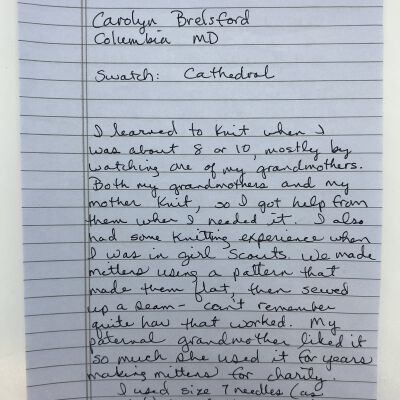 Carolyn Brelsford
Columbia MD
Swatch: Cathedral
I learned to knit when I
was about 8 or 10, mostly by
watching one of my grandmothers.
Both my grandmothers and my
mother knit, so I got help from
them when I needed it. I also
had some knitting experience when
I was in girl Scouts. We made
mittens using a pattern that
made them flat, then sewed
up a seam - can't remember
quite how that worked. My
paternal grandmother liked it
so much she used it for years
making mittens for charity.
I used size 7 needles (as